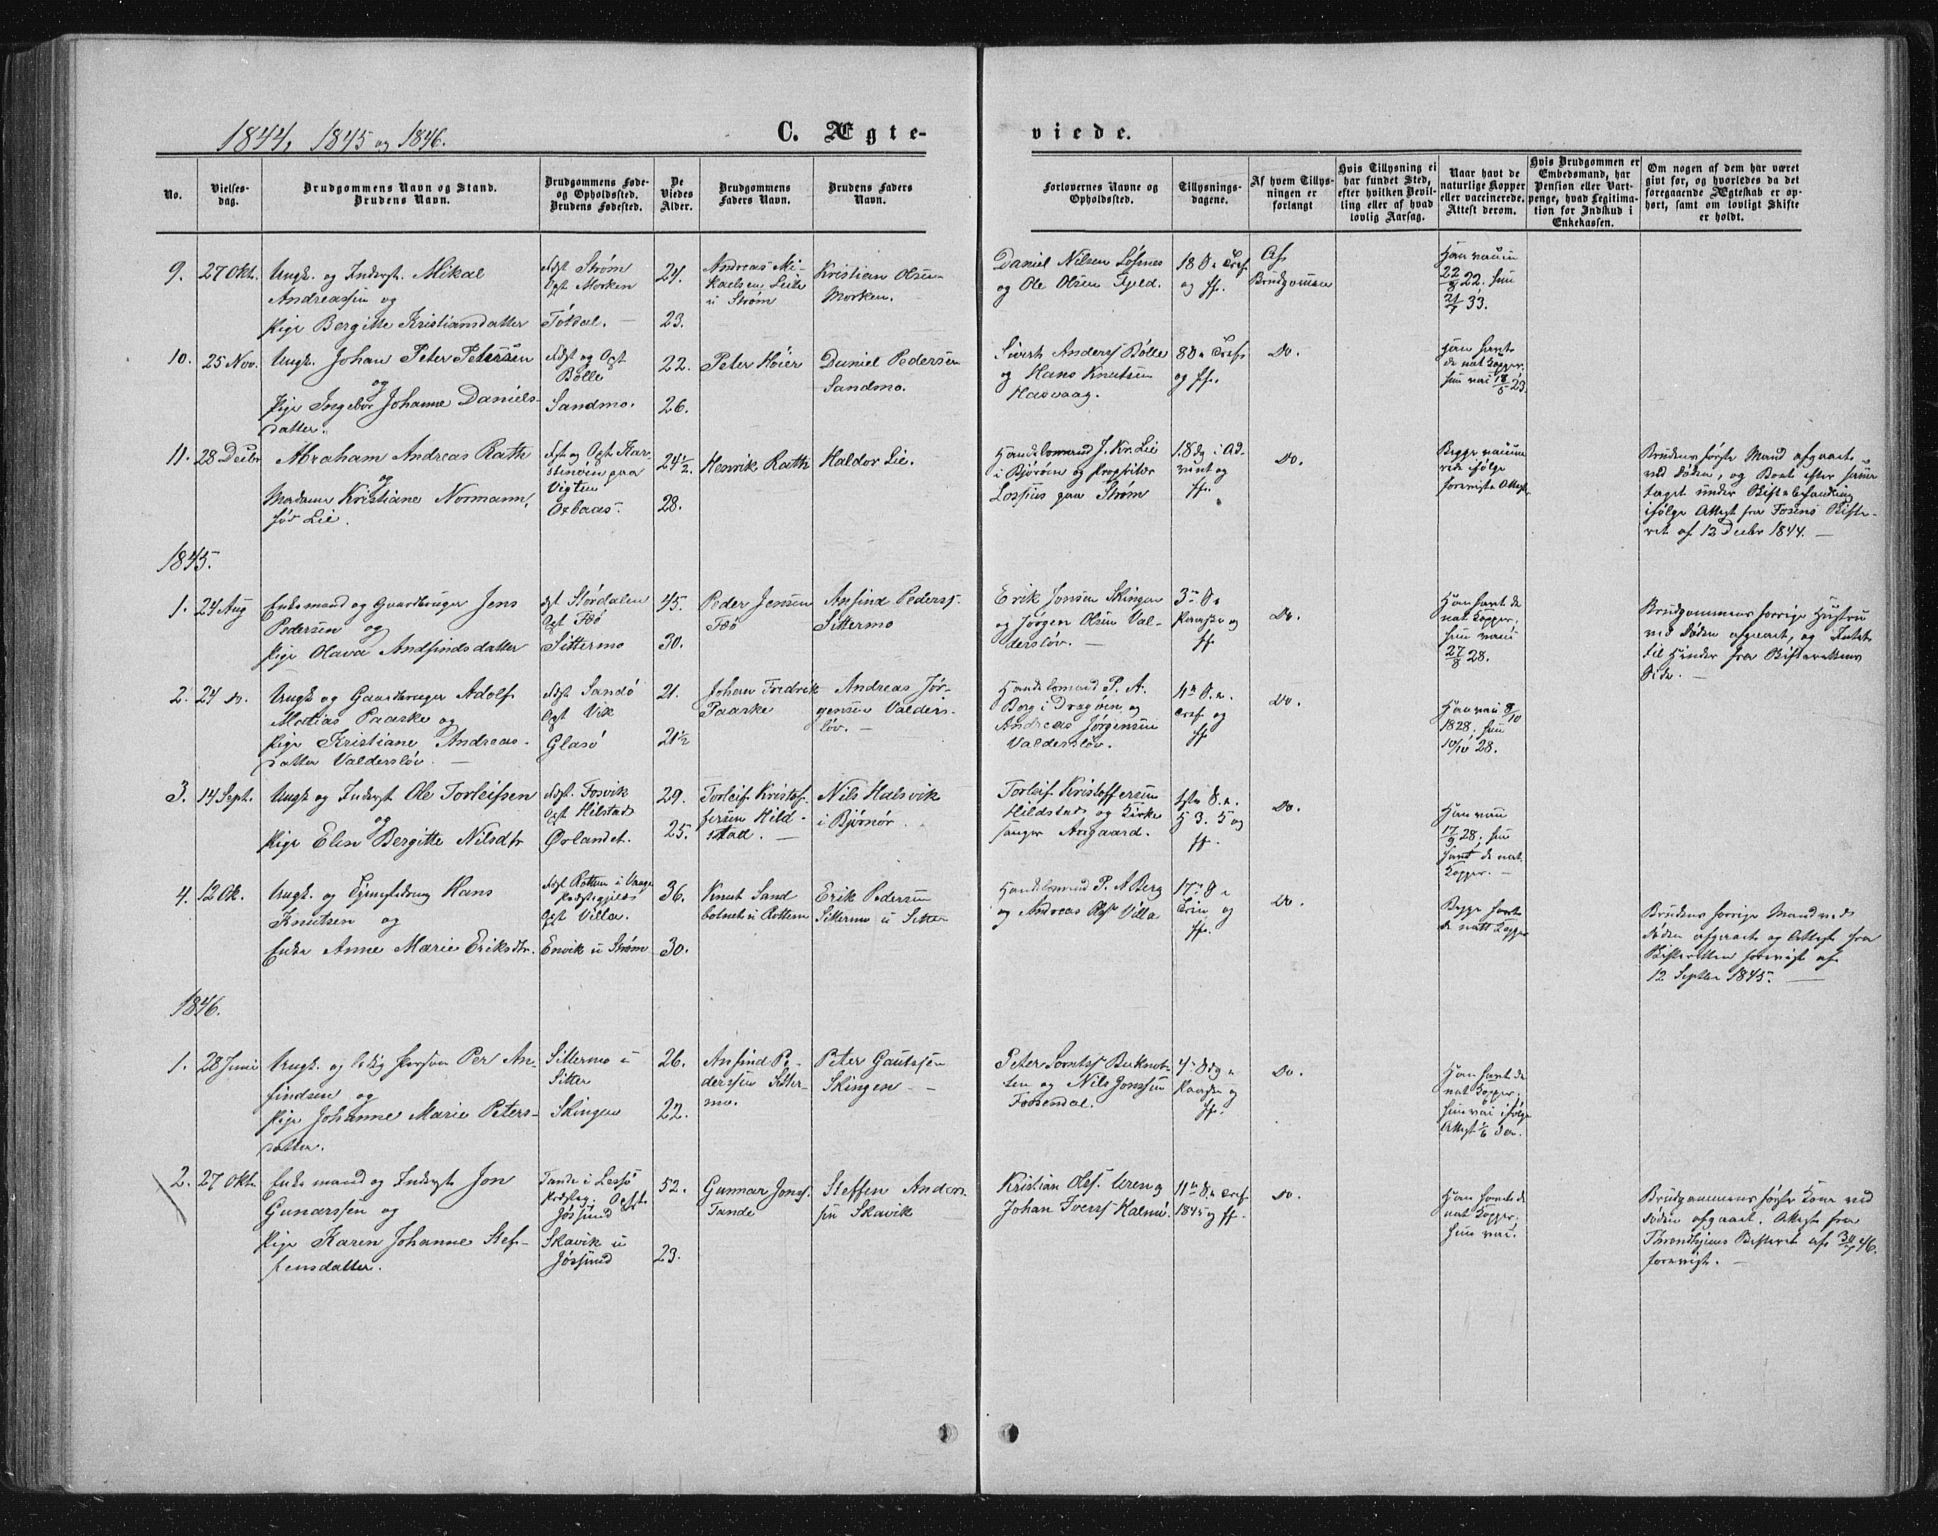 1844, 1845 og 1846.
C. Ægte-
viede.
No.
Vielses-
dag.
Brudgommens Navn og Stand.
Brudens Navn.
Brudgommens Føde-
og Opholdssted.
Brudens Fødested.
De
Viedes
Alder.
Brudgommens
Faders Navn.
Brudens Faders
Navn.
Forlovernes Navne og
Opholdssted.
Tillysnings-
dagene.
Af hvem Tillys-
ningen er
forlangt
Hvis Tillysning ei
har fundet Sted,
efter hvilken Bevil-
ling eller af hvad
lovlig Aarsag.
Naar havt de
naturlige Kopper
eller vaccinerede.
Attest derom.
Hvis Brudgommen er
Embedsmand, har
Pension eller Vart-
penge, hvad Legitima-
tion for Indskud i
Enkekassen.
Om nogen af dem har været
gift før, og hvorledes da det
foregaaende Ægteskab er op-
hørt, samt om lovligt Skifte
er holdt.
9. 27 Okt.
Ungk. og Inderst. Mikal
Andreassen og
Pige Bergitte Kristiansdatter
Fdt Strøm
Opt Morken
24.
23.
Andreas Mi-
kaelsen
i Strøm
Kristian Olsen
Morken.
Daniel Nilsen
og Ole Olsen Fjeld.
18 S. e Tref
og ff.
Af
Brudgommen
Han vacin
22/8 22. hun
21/7 33.
10. 25 Nov.
Ungk. Johan Peter Petersen
og
Pige Ingebor Johanne Daniels-
datter.
Fdt og Opt
Bølle
Sandmo.
22.
26.
Peter Høier
Daniel Pedersen
Sandmo.
Sivert Anders Bølle
og Hans Knutsen
Hasvaag.
8 S. e Tref
og ff.
Do.
Han havt
de nat Kopper.
hun vac 18/5 23.
11. 28 Decbr
Abraham Andreas Rath
og
Madame Kristiane Normann,
fød Lie.
Fdt og Opt
paa
Vigten
Oxbaas.
24½
28.
Henrik Rath
Haldor Lie.
Handelsmand J. Kr. Lie
i Bjørøen og Proprietær
Lossius paa Strøm
1. S dg i Ad-
vent og
ff.
Do.
Begge vaccine-
rede ifølge
foreviste Attest
Brudens første Mand afgaaet
ved Døden, og Boet efter ham
taget under Skiftebehandling
ifølge Attest fra Fosens Skifte-
ret af 12 Decbr 1844. —
1845.
1. 24 Aug
Enkemand og Gaardbruger Jens
Pedersen og
Pige Olava Andfindsdatter
Fdt Størdalen
Opt Fæø
Sittermo
45.
30.
Peder Jensen
Fæø
Anfind Peders.
Sittermo
Erik Jonsen Skingen
og Jørgen Olsen Val-
dersløv. —
3die S. e
Paaske og
ff.
Do.
Han havt de
nat Kopper,
hun vac
27/8 28.
Brudgommens forrige Hustru
ved Døden afgaaet, og Intet
til Hinder fra Skifterettens
Side. —
2. 24 do.
Ungk og Gaardbruger Adolf
Matias Paaske og
Pige Kristiane Andreas-
datter Valdersløv. —
Fdt Sandø
Opt Vik
Glasø
21.
21½
Johan Fredrik
Paaske
Andreas Jør-
gensen Valders-
løv. —
Handelsmand P. A.
Berg i Dragøen og
Andreas Jørgensen
Valdersløv.
11te S. e.
Tref. og
ff
Do.
Han vac 8/10
1828, hun
10/10 28.
3. 14 Sept.
Ungk og Inderst Ole Torleifsen
og
Pige Elen Bergitte Nilsdtr
Fdt. Fosvik
Opt Hilstad
Ørlandet.
29.
25.
Torleif Kristof-
fersen Hild-
stad. —
Nils Halsvik
i Bjørnør.
Torleif Kristoffersen
Hildstad og Kirke
sanger Aurgaard.
og
ff.
Do.
Han vac
17/9 28, hun
havt de nat.
Kopper. —
4. 12 Ok.
Ungk. og Hans
Knutsen og
Enke Anne Marie Eriksdtr.
Opt Villa.
Envik i Strøm
36.
30.
Knut Sand
botnet i Rottem
Erik Pedersen
Sittermo i Sitter
Handelsmand P. A Berg
og Andreas Ols Villa
17de S e
Trin. og
ff.
Do.
Begge havt
de natt Kopper
Brudens forrige Mand ved
Døden afgaaet og Attest fra
Skifteretten forevist af
12 Septbr 1845. —
1846.
1. 28 Juni
Ungk. og ledig Person Per An-
findsen og
Pige Johanne Marie Peters-
datter.
Sittermo i
Sitter
Skingen
26.
22.
Anfind Pe-
dersen Sitter-
mo.
Peter Gautsen
Skingen —
Peter Lorntss
og Nils Jonssen
Fossendal.
4de S dg e
Paaske og
ff.
Do.
Han havt de
nat Kopper,
hun vac ifølge
Attest
2. 27 Okt.
Enkemand og Inderst Jon
Gunarssen og
Pige Karen Johanne Stef-
fensdatter.
Tande i Lesjø
Præstegj. Opt.
Jøssund
Skavik i
Jøssund
52.
23.
Gunnar Jonss
Tande
Steffen Ander-
sen Skavik
Kristian Ols. Uren og
Johan Iverss Kalmø.
11te S. e Tref
1845 og ff.
Do.
Han havt de
nat Kopper,
hun vac.
Brudgommens første Kone ved
Døden afgaaet. Attest fra
Throndhjems Skifteret af 30/7 46.
forevist. —